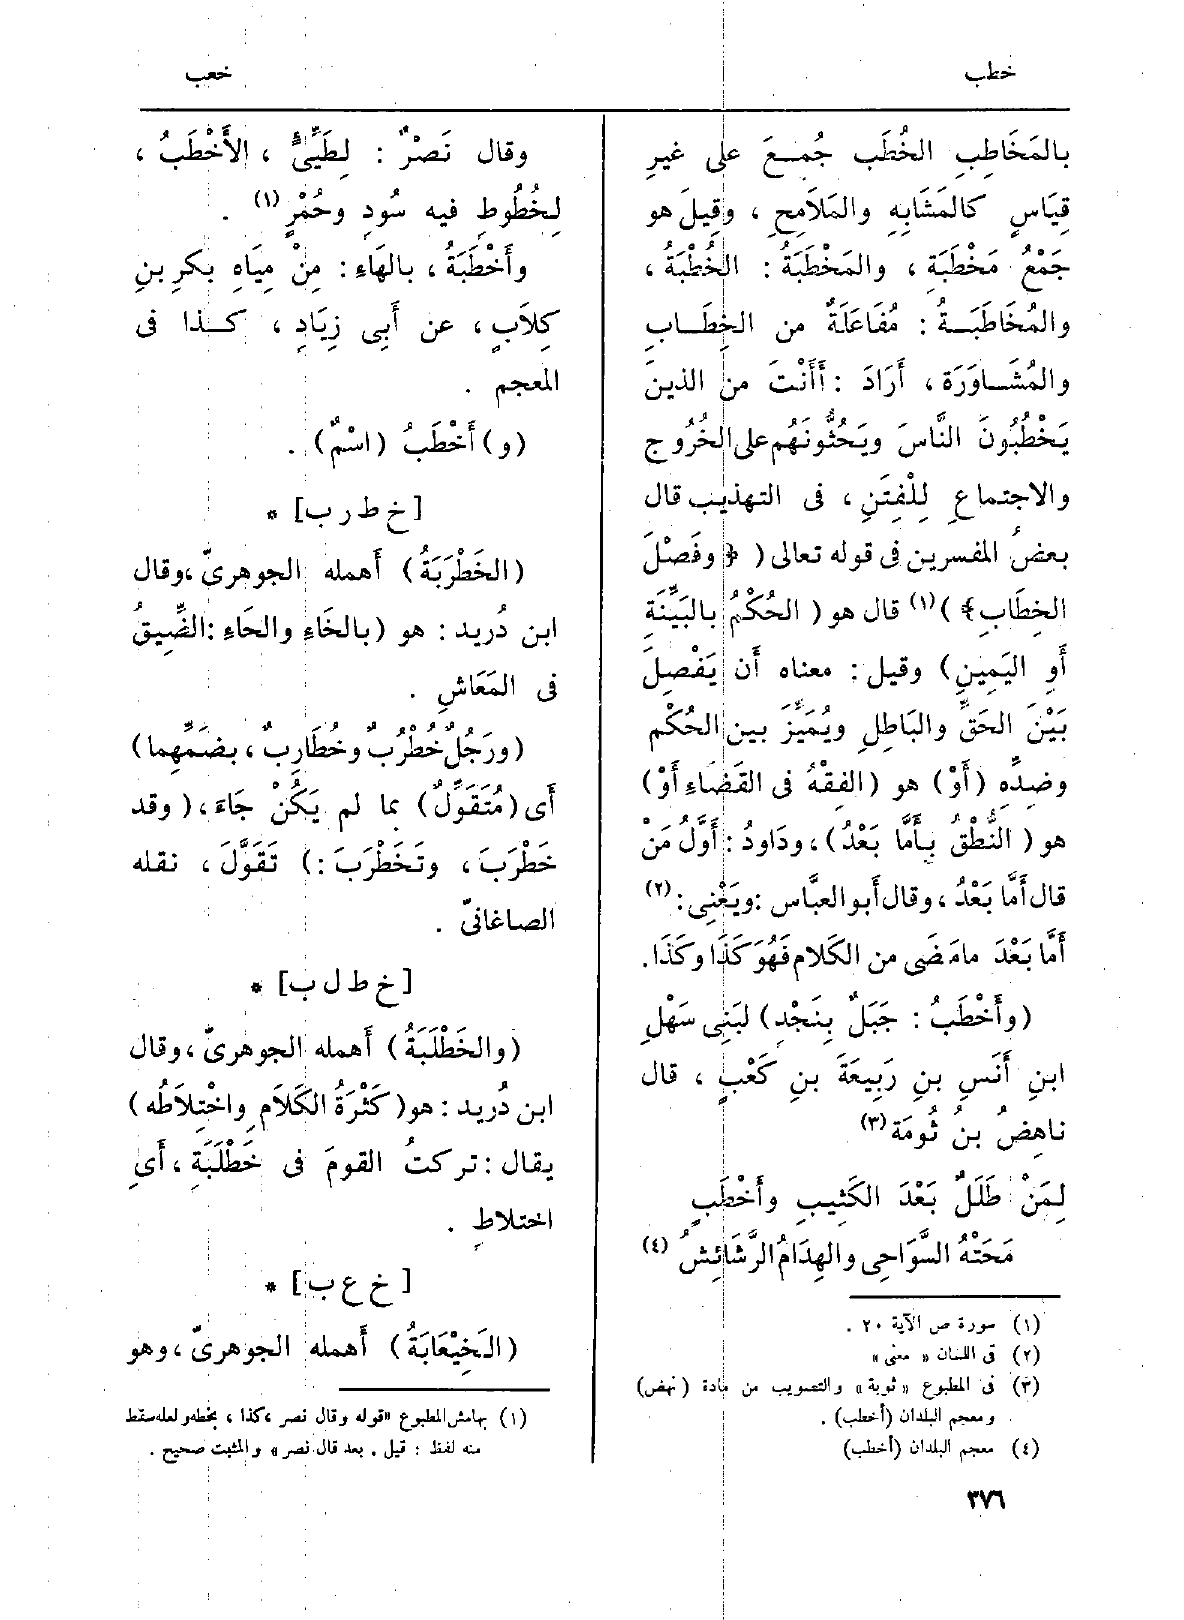 خطب
خعب
بالمَخَاطِبِ الخُطَب جُمِعَ على غيرِ
قِيَاسٍ كالمَشَابِهِ والمَلاَمِحِ ، وقِيلَ هو
جَمْعُ مَخْطَبَةِ ، والمَخْطَبَةُ : الخُطْبَةُ ،
والمُخَاطَبَةُ : مُفَاعَلَةٌ من الخِطَابِ
والمُشَاوَرَة ، أَرَادَ : أَأَنْتَ من الذينَ
يَخْطُبُونَ النَّاسَ ويَحُثُّونَهُم على الخُرُوجِ
والاجتماعِ لِلْفِتَنِ ، فى التهذيب قال
بعضُ المفسرين فى قوله تعالى ( ﴿ وفَصْلَ
الخِطَابِ ﴾ )(١) قال هو ( الحُكْمُ بالبَيِّنَةِ
أَوِ اليَمِينِ) وقيل : معناه أَن يَفْصِلَ
بَيْنَ الحَقِّ والبَاطِلِ ويُمَيِّزَ بين الحُكْم
وضِدِّهِ (أَوْ) هو (الفِقْهُ فى القَضَاءِ أَوْ)
هو ( النُّطْقُ بِأَمَّا بَعْدُ) ، ودَاودُ : أَوَّلُ مَنْ
قال أَمَّا بَعْدُ ، وقال أَبو العبَّاس : ويَعْنِى :(٢)
أَمَّا بَعْدَ مامَضَى من الكَلامِ فَهُوَ كَذَا وكَذَا .
(وأَخْطَبُ : جَبَلٌ بِنَجْدِ) لبَنِى سَهْلِ
ابنِ أَنَسِ بنِ رَبِيعَةَ بنِ كَعْبٍ ، قال
ناهِضُ بنُ ثُومَة(٣)
لِمَنْ طَلَلٌ بَعْدَ الكَثِيبِ وأَخْطَبٍ
مَحَتْهُ السَّوَاحِى والهِدَامُ الرَّشَائِشُ (٤)
(١) سورة ص الآية ٢٠ .
(٢) فى اللسان « معنى »
(٣) فى المطبوع « ثوبة » والتصويب من مادة (نهض)
ومعجم البلدان (أخطب) .
(٤) معجم البلدان (أخطب)
وقال نَصْرٌ : لِطَيِّئٍ ، الأَخْطَبُ ،
لِخُطُوطٍ فيه سُودٍ وحُمْرٍ(١) .
وأَخْطَبَةُ ، بالهَاءِ : مِنْ مِيَاهِ بكرِ بنِ
كِلاَبٍ ، عن أَبِى زِيَادٍ ، كذا فى
المعجم .
(و) أَخْطَبُ (اسْمٌ) .
[خ ط ر ب] *
(الخَطْرَبَةُ) أَهمله الجوهرىّ ، وقال
ابن دُريد : هو (بالخَاءِ والحَاءِ : الضِّيقُ
فى المَعَاشِ .
(ورَجُلٌ خُطْرُبٌ وخُطَارِبٌ ، بضَمِّهِما)
أَى (مُتَقَوِّلٌ) بما لم يَكُنْ جَاءَ ، ( وقد
خَطْرَبَ ، وتَخَطْرَبَ :) تَقَوَّلَ ، نقله
الصاغانىّ .
[خ ط ل ب] *
(والخَطْلَبَةُ) أَهمله الجوهرىّ ، وقال
ابن دُريد : هو (كَثْرَةُ الكَلاَمِ واخْتِلاَطُه)
يقال : تركتُ القومَ فى خَطْلَبَةٍ ، أَىِ
اختلاطٍ .
[خ ع ب] *
(الخَيْعَابَةُ) أَهمله الجوهرىّ ، وهو
(١) بهامش المطبوع « قوله وقال نصر ، كذا ، بخطه ولعله سقط
منه لفظ : قيل . بعد قال نصر » والمثبت صحيح .
٣٧٦